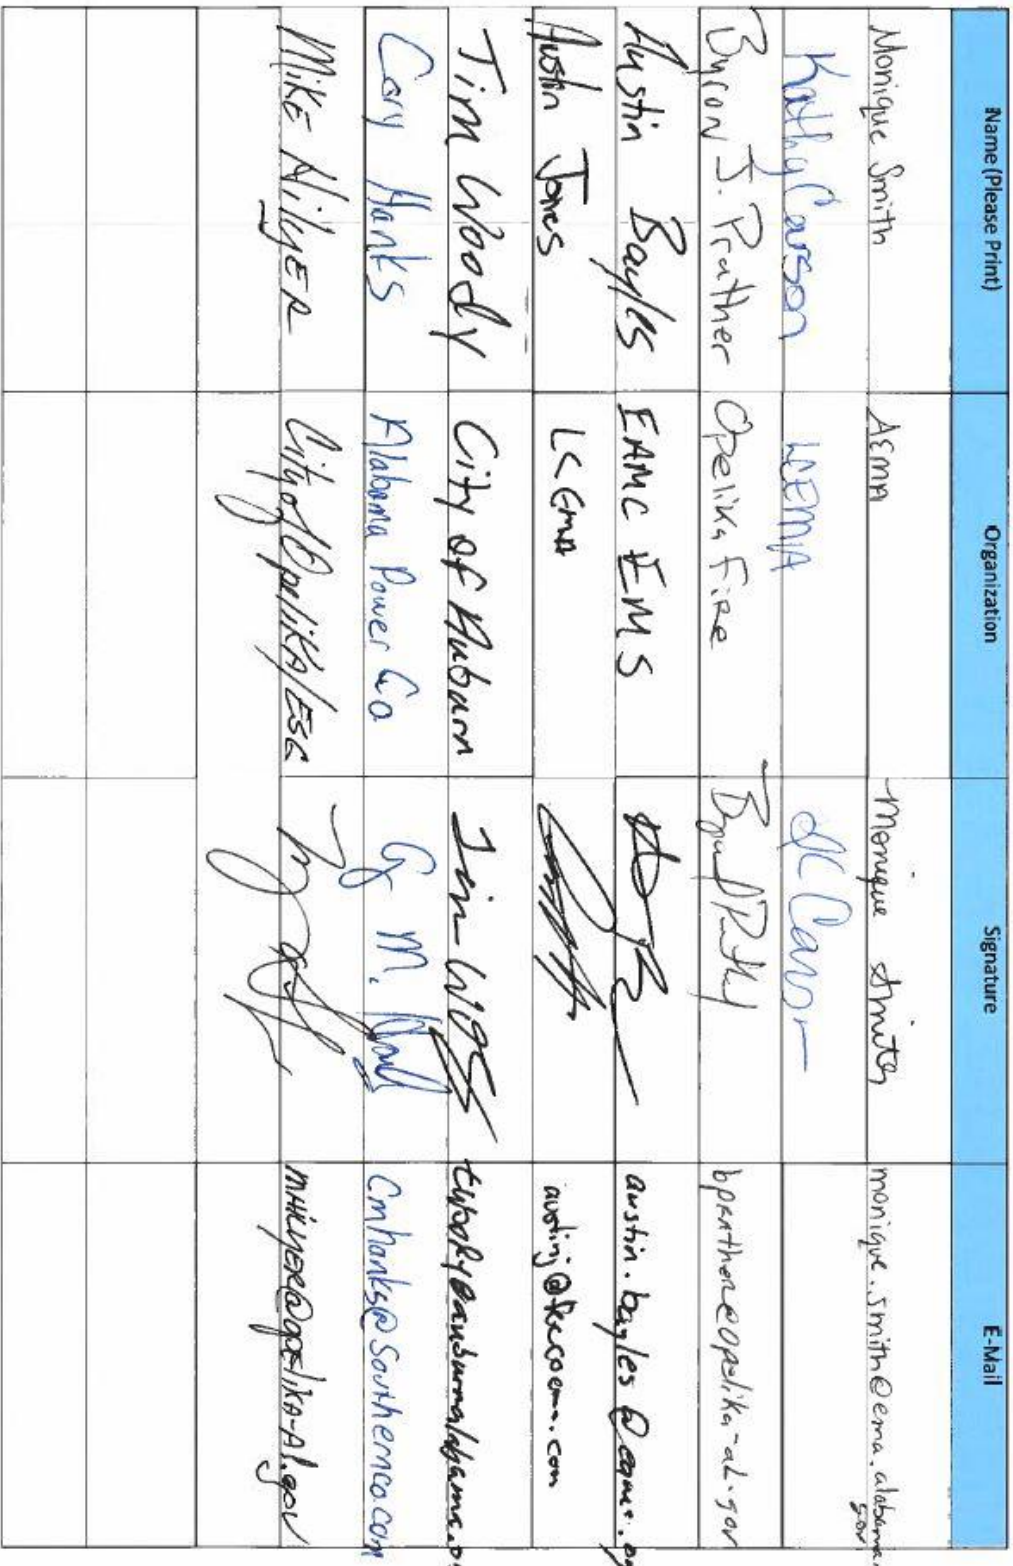 Name (Please Print) Organization Signature E-Mail
Monique Smith AEMA Monique Smith monique.smith@ema.alabama.gov
Kathy Carson LCEMA K Carson
Byron J. Prather Opelika Fire bprather@opelika-al.gov
Austin Bayles EAMC EMS austin.bayles@eamc.or
Austin Jones LCEMA austinj@leecoema.com
Tim Woody City of Auburn twoody@auburnalabama.o
Cary Hanks Alabama Power Co cmhanks@southernco.com
Mike Hilyer City of Opelika/ESG mhilyer@opelika-al.gov